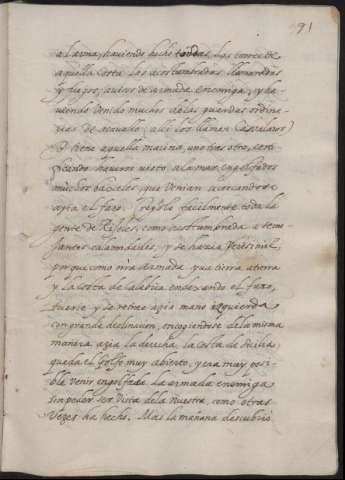 91
al arma, haviendo hecho todas las torres de
aquella costa las acostumbradas llamaradas
y fuegos, aviso de armada enemiga, y ha-
uiendo venido muchos de las guardas ordina-
rias de acauallo, alli los llaman Caualaros
q tiene aquella marina, uno tras otro, certi-
ficando hauerse visto a la mar engolfados
muchos baxeles, que venian acercandose
azia el faro. Creyolo facilmente toda la
gente de Rijoles, como acostumbrada a seme-
jantes calamidades, y se hazia verisimil
porque como nra armada yua tierra a tierra
y la costa de Calabria embocando el faro,
tuerce y se retrae azia mano izquierda
con grande declinacion, encogiendose de la misma
manera azia la derecha la costa de Sicilia
queda el golfo muy abierto, y era muy posi-
ble venir engolfada la armada enemiga
sin poder ser vista de la nuestra, como otras
vezes ha hecho. Mas la mañana descubrio